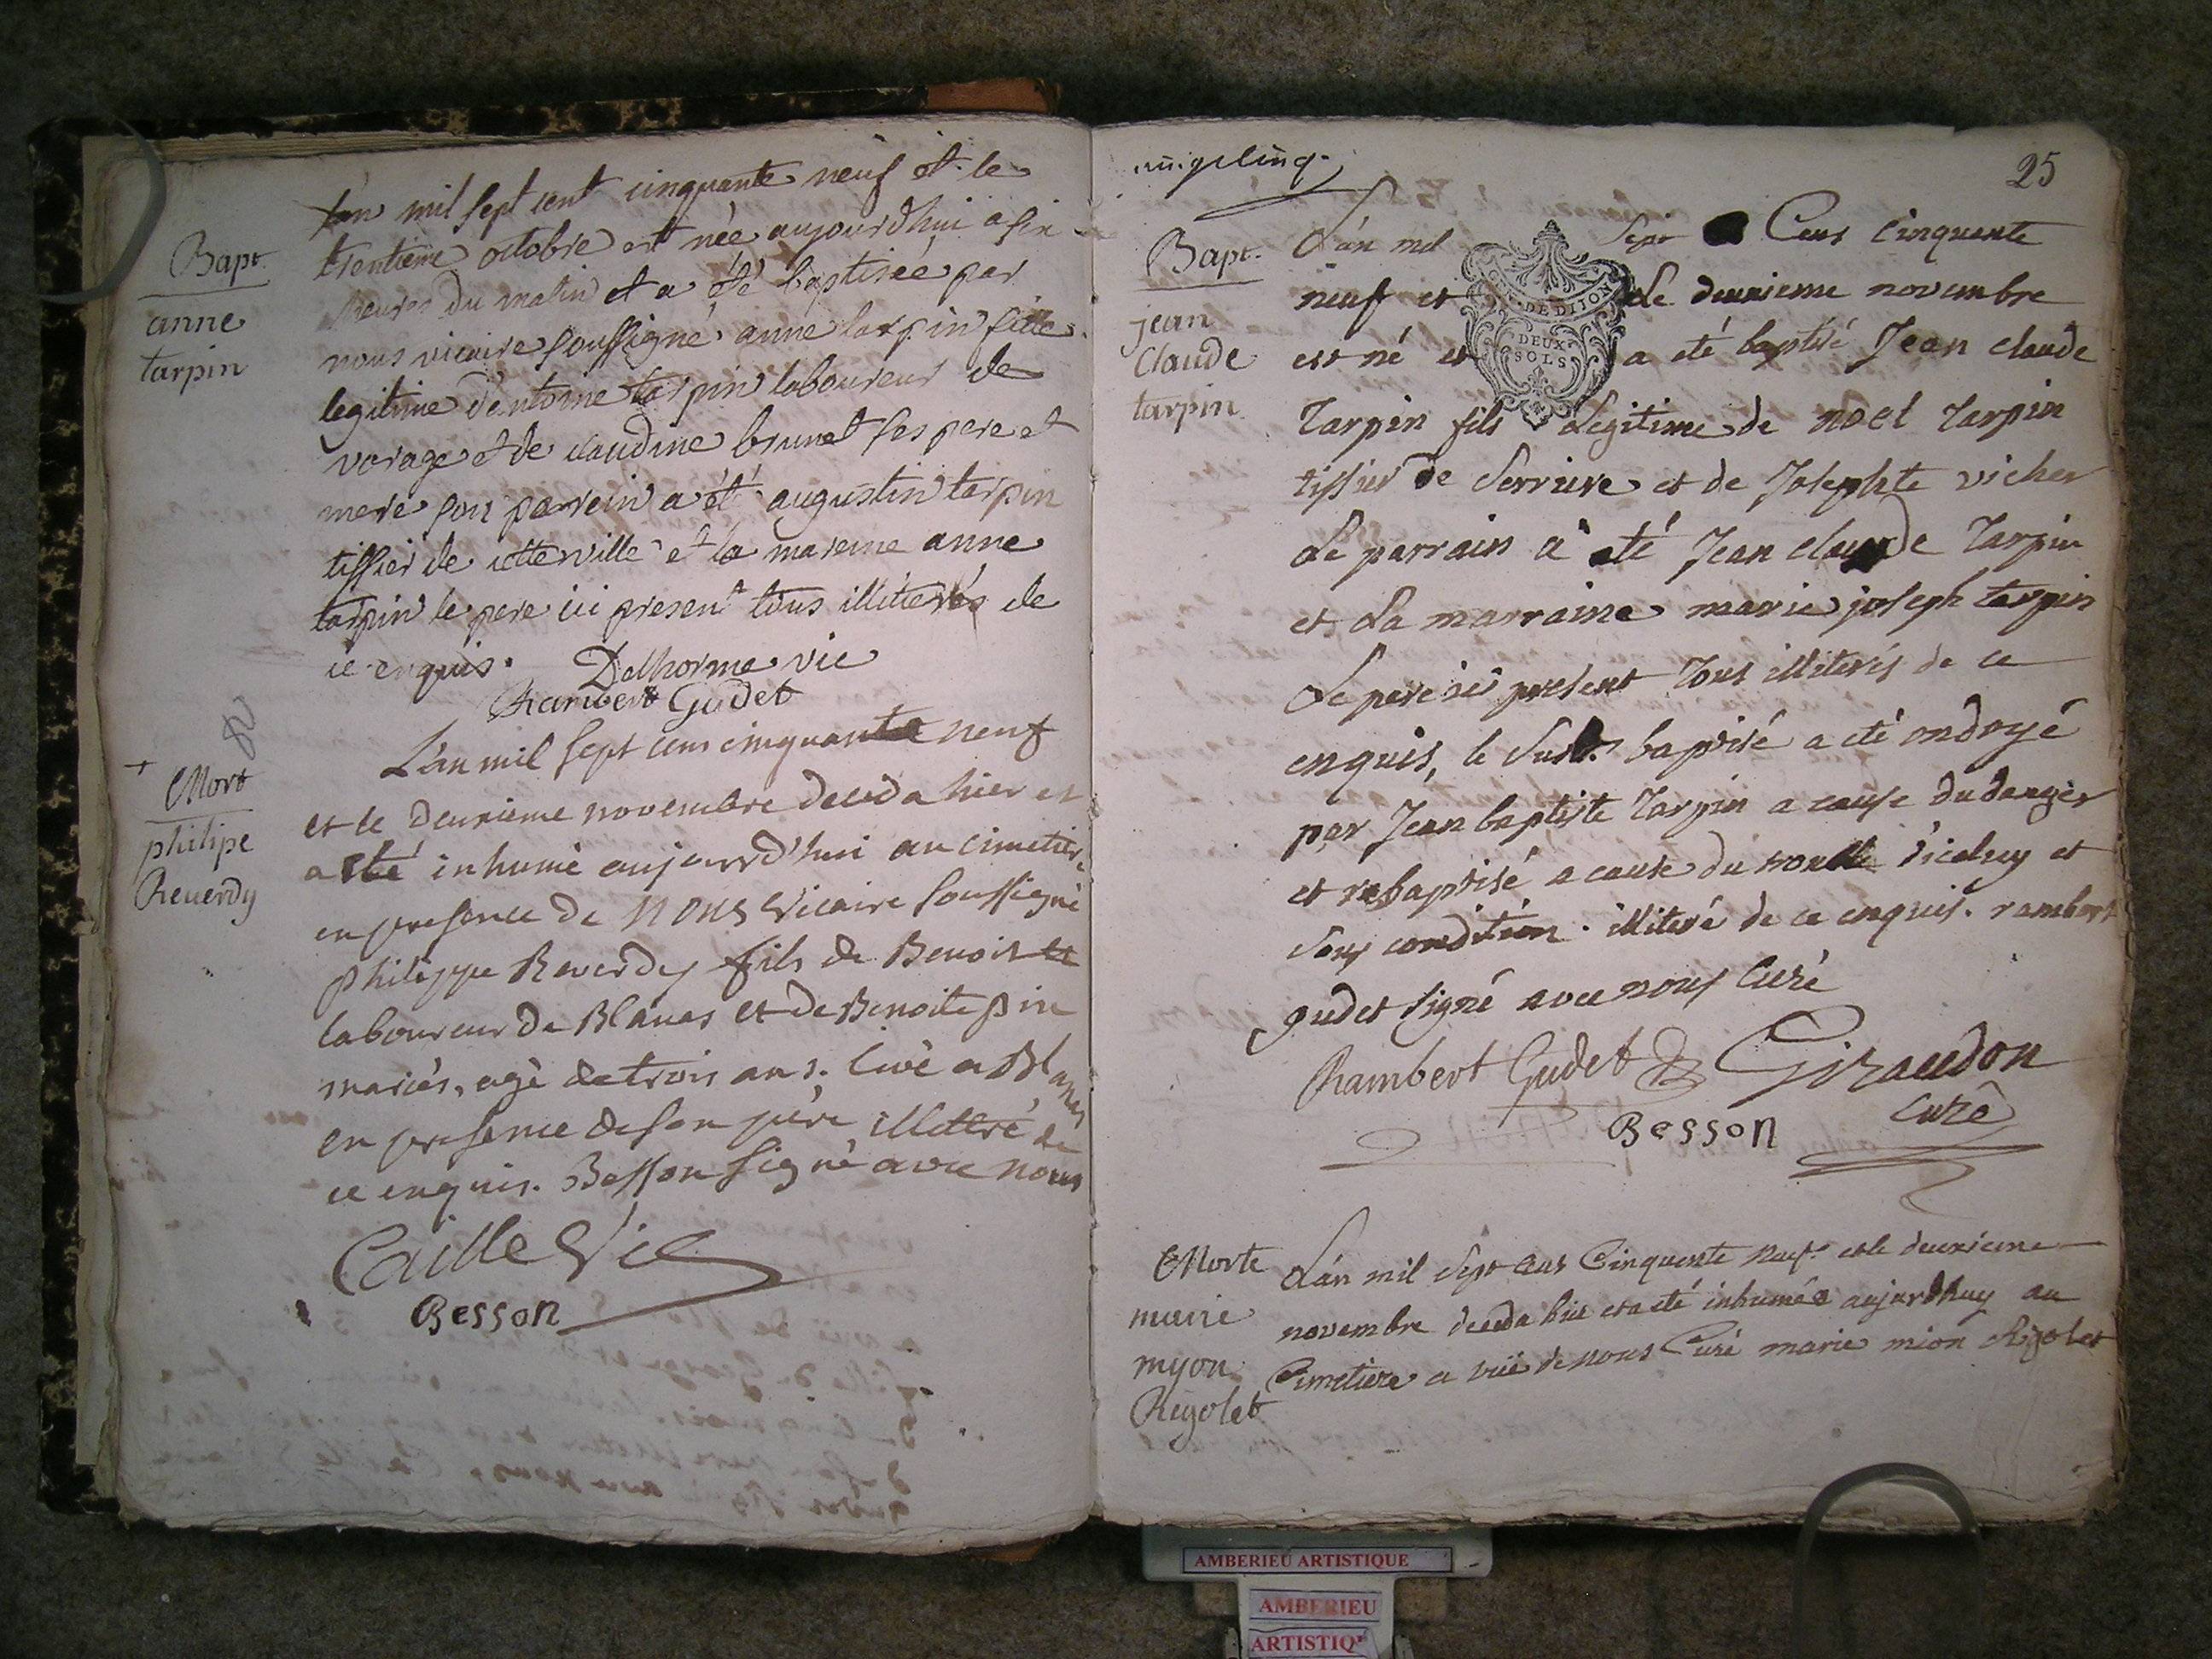 Bapt.
anne
tarpin
L'an mil sept cent cinquante neuf et le
trentieme octobre est née aujourdhui a six
heures du matin et a été baptisée par
nous vicaire soussigné anne tarpin fille
legitime d'entoine tarpin laboureur de
vorage et de claudine brunet ses pere et
mere son parrein a été augustin tarpin
tissier de cette ville et la mareine anne
tarpin le pere ici present tous illitterés de
ce enquis. Delhorme vic
Rambert Gudet
+
Mort
philipe
Reverdy
L'an mil sept cens cinquante neuf
et le deuxieme novembre deceda hier et
a été inhumé aujourd'hui au cimetiere
en presence de nous Vicaire soussigné
philippe Reverdy fils de Benoit
laboureur de Blanas et de Benoite pin
mariés, agé de trois ans. livé a Blanas
en presence de son père illettré de
ce enquis. Besson signé avec nous
Caille Vic
Besson
25
Bapt.
jean
Claude
tarpin
L'an mil Sept Cens Cinquente
neuf et Le deuxieme novembre
est né et a eté baptisé Jean claude
Tarpin fils Legitime de noel Tarpin
tissier de Serriere et de Josephte vicher
Le parrain a eté Jean claude Tarpin
et La marraine marie joseph tarpin
Le pere ici present Tous illiterés de ce
enquis, le Susd. baptisé a eté ondoyé
par Jean baptiste Tarpin a cause du danger
et rebaptisé a cause du et
sous condition. illiteré de ce enquis. rambert
gudet signé avec nous Curé
Rambert Gudet Giraudon
Besson curé
GEN. DE DIJON
DEUX
SOLS
Morte
marie
myon
Rigolet
L'an mil Sept cens Cinquente neuf et le deuxieme
novembre deceda hier et a eté inhumée aujurdhuy au
Cimetiere a vüe de nous Curé marie mion Rigolet
AMBERIEU ARTISTIQUE
AMBERIEU
ARTISTIQ